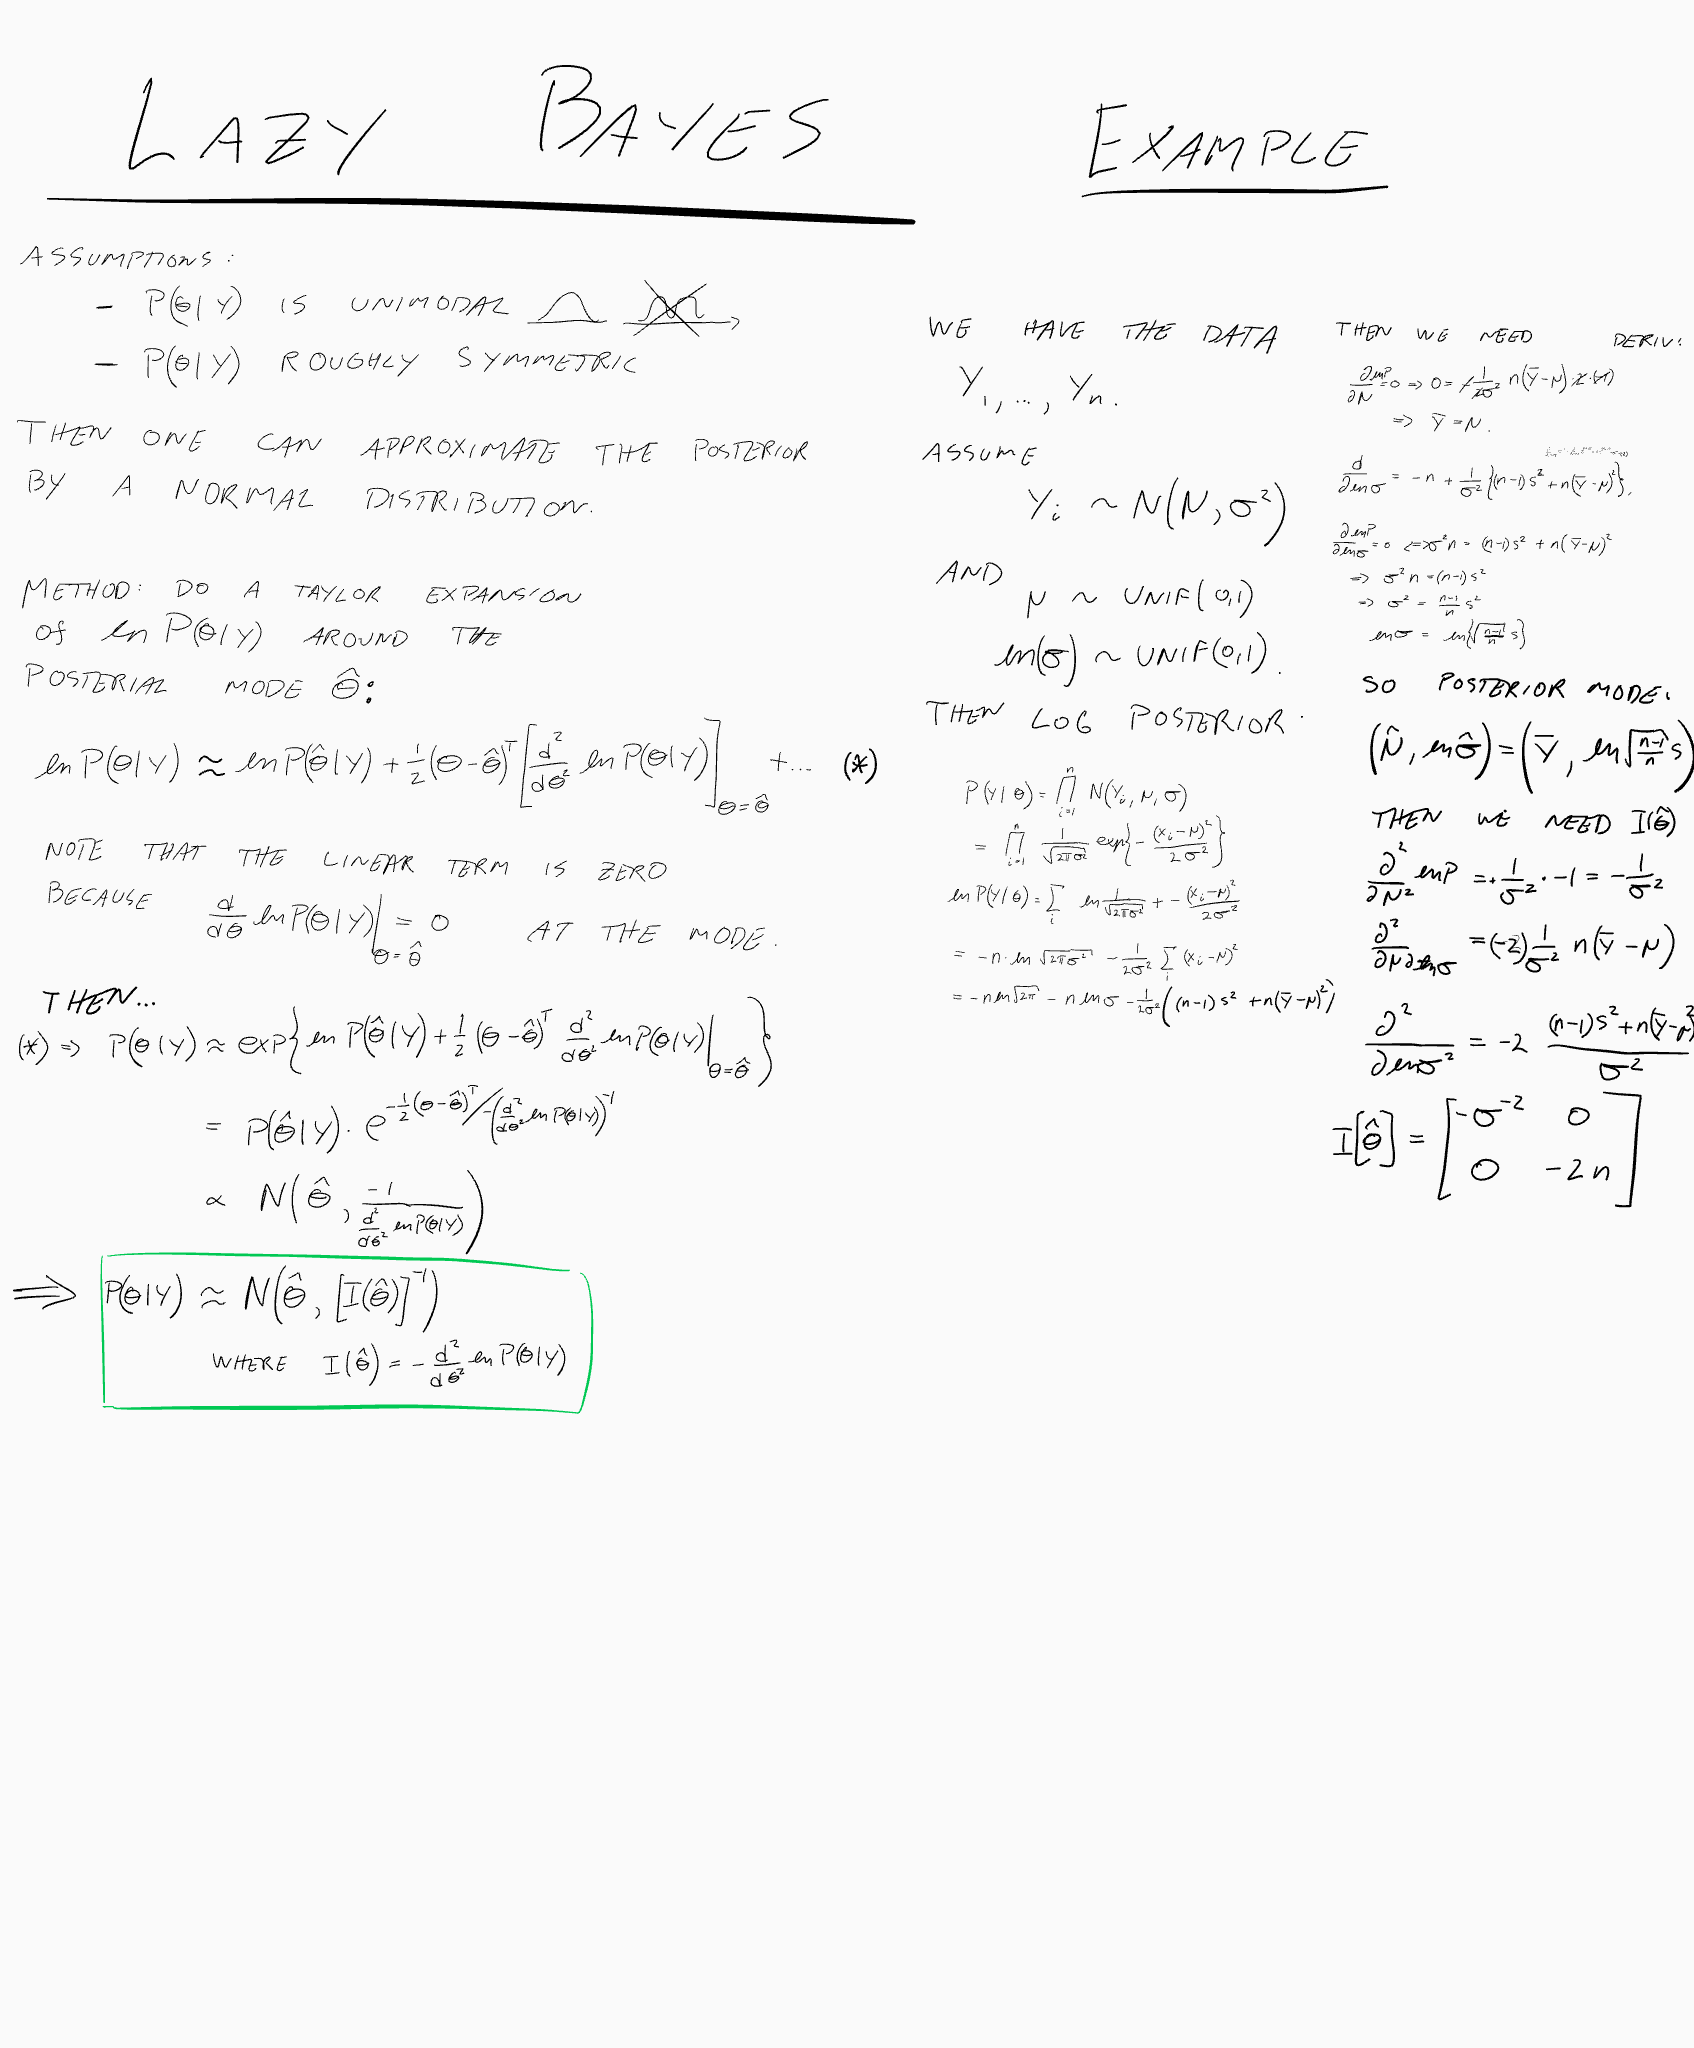 LAZY BAYES
ASSUMPTIONS:
- P(θ|Y) IS UNIMODAL
- P(θ|Y) ROUGHLY SYMMETRIC
THEN ONE CAN APPROXIMATE THE POSTERIOR
BY A NORMAL DISTRIBUTION.
METHOD: DO A TAYLOR EXPANSION
OF ln P(θ|Y) AROUND THE
POSTERIAL MODE θ̂:
ln P(θ|Y) ≈ ln P(θ̂|Y) + 1/2 (θ-θ̂)ᵀ [d²/dθ² ln P(θ|Y)]_θ=θ̂ + ... (*)
NOTE THAT THE LINEAR TERM IS ZERO
BECAUSE d/dθ ln P(θ|Y)|_θ=θ̂ = 0 AT THE MODE.
THEN...
(*) ⇒ P(θ|Y) ≈ exp{ln P(θ̂|Y) + 1/2 (θ-θ̂)ᵀ d²/dθ² ln P(θ|Y)|_θ=θ̂}
= P(θ̂|Y) · e^(-1/2 (θ-θ̂)ᵀ / -(d²/dθ² ln P(θ|Y))⁻¹)
∝ N(θ̂, -1 / (d²/dθ² ln P(θ|Y)))
⇒ P(θ|Y) ≈ N(θ̂, [I(θ̂)]⁻¹)
WHERE I(θ̂) = - d²/dθ² ln P(θ|Y)
EXAMPLE
WE HAVE THE DATA
Y₁, ..., Yn.
ASSUME
Yi ~ N(μ, σ²)
AND
μ ~ UNIF(0,1)
ln(σ) ~ UNIF(0,1).
THEN LOG POSTERIOR.
P(Y|θ) = ∏ⁿi=1 N(Yi, μ, σ)
= ∏ⁿi=1 1/√(2πσ²) exp{-(xi-μ)²/2σ²}
ln P(Y|θ) = Σi ln 1/√(2πσ²) + -(xi-μ)²/2σ²
= -n · ln √(2πσ²) - 1/2σ² Σi (xi-μ)²
= -n ln √2π - n ln σ - 1/2σ² ((n-1)s² + n(Ȳ-μ)²)
THEN WE NEED DERIV:
∂lnP/∂μ = 0 ⇒ 0 = -1/2σ² n(Ȳ-μ)·2·(-1)
⇒ Ȳ = μ.
d/∂lnσ = -n + 1/σ² {(n-1)s² + n(Ȳ-μ)²},
∂lnP/∂lnσ = 0 ⇔ σ²n = (n-1)s² + n(Ȳ-μ)²
⇒ σ²n = (n-1)s²
⇒ σ² = (n-1)/n s²
lnσ = ln{√((n-1)/n) s}
SO POSTERIOR MODE:
(μ̂, ln σ̂) = (Ȳ, ln √((n-1)/n) s)
THEN WE NEED I(θ̂)
∂²/∂μ² lnP = +1/σ² · -1 = -1/σ²
∂²/∂μ∂lnσ = (-2) 1/σ² n(Ȳ-μ)
∂²/∂lnσ² = -2 ((n-1)s² + n(Ȳ-μ)²)/σ²
I[θ̂] = [-σ⁻² 0
0 -2n]